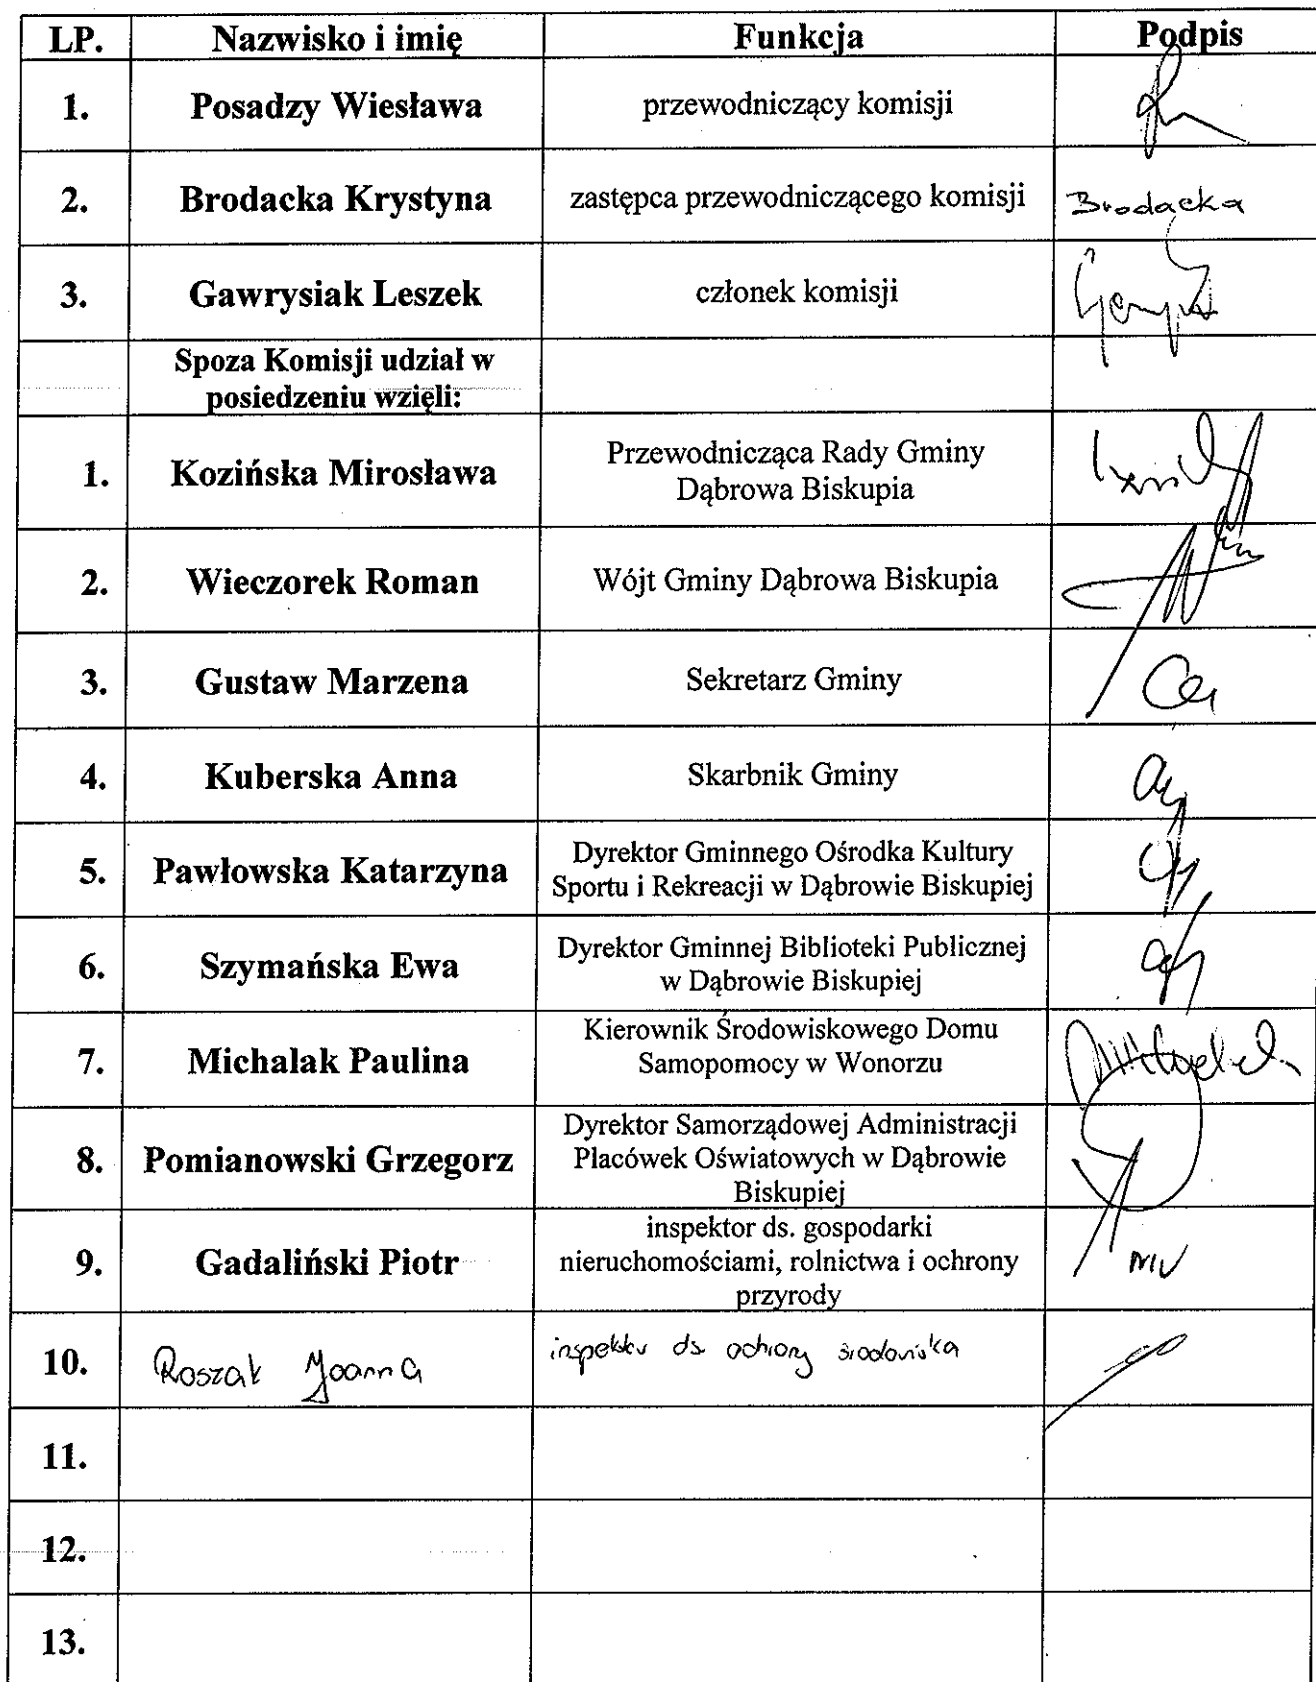 LP. Nazwisko i imię Funkcja Podpis
1. Posadzy Wiesława przewodniczący komisji
2. Brodacka Krystyna zastępca przewodniczącego komisji Brodacka
3. Gawrysiak Leszek członek komisji
Spoza Komisji udział w
posiedzeniu wzięli:
1. Kozińska Mirosława Przewodnicząca Rady Gminy
Dąbrowa Biskupia
2. Wieczorek Roman Wójt Gminy Dąbrowa Biskupia
3. Gustaw Marzena Sekretarz Gminy
4. Kuberska Anna Skarbnik Gminy
5. Pawłowska Katarzyna Dyrektor Gminnego Ośrodka Kultury
Sportu i Rekreacji w Dąbrowie Biskupiej
6. Szymańska Ewa Dyrektor Gminnej Biblioteki Publicznej
w Dąbrowie Biskupiej
7. Michalak Paulina Kierownik Środowiskowego Domu
Samopomocy w Wonorzu
8. Pomianowski Grzegorz Dyrektor Samorządowej Administracji
Placówek Oświatowych w Dąbrowie
Biskupiej
9. Gadaliński Piotr inspektor ds. gospodarki
nieruchomościami, rolnictwa i ochrony
przyrody
10. Roszak Joanna inspektor ds ochrony środowiska
11.
12.
13.